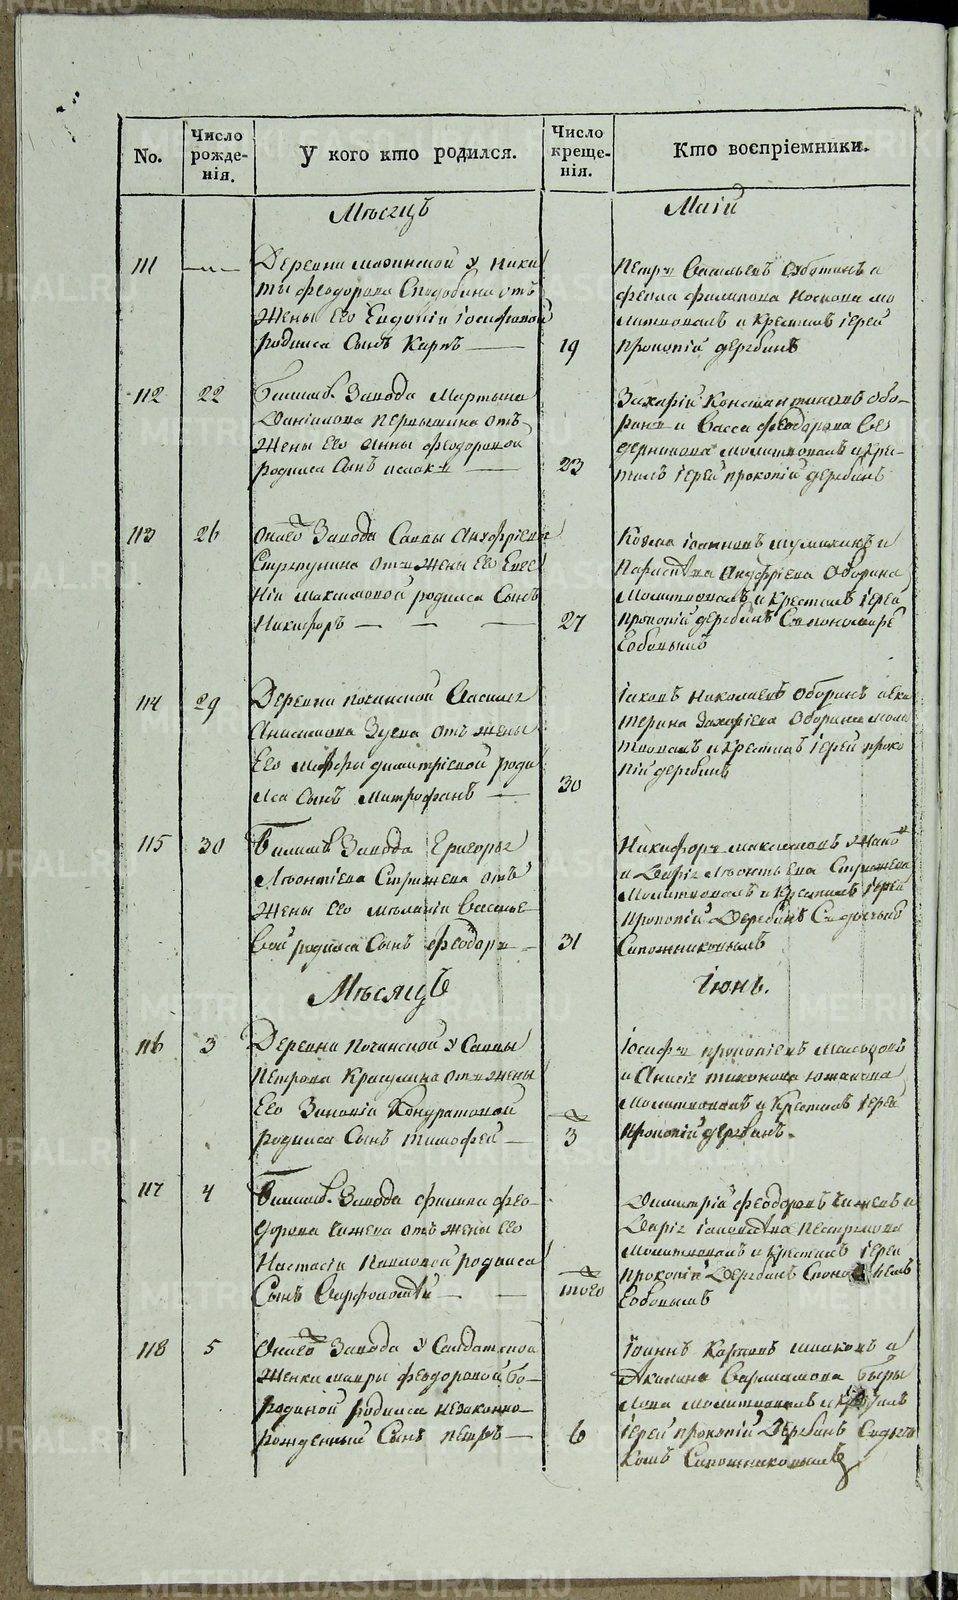 No.
Число рожде- нія.
У кого кто родился.
Число креще- нія.
Кто воспріемники.
Мѣсяцъ
Маій
111
Деревни у Ники
ты Феодорова отъ
жены его Іосифовой
родился сынъ Карпъ
19
Петръ Васильевъ и
Филипова Носкова мо
литвовалъ и крестилъ іерей
Прокопій Дерябинъ
112
22
Билимб. Завода Мартына
Даніилова Первышина отъ
жены его Анны Феодоровой
родился сынъ Исаакъ
23
Захарій Константиновъ Обо-
ринъ и Васса Феодорова
молитвовалъ и кре-
тилъ іерей Прокопій Дерябинъ
113
26
Онаго Завода Саввы
отъ жены его Евге
ніи Максимовой родился сынъ
Никифоръ
27
Козма Іоанновъ и
Оборина
молитвовалъ и крестилъ іерей
Прокопій Дерябинъ съ пономаремъ
114
29
Деревни Починской Василья
Анисимова Зуева отъ жены
его Марфы Димитріевой роди
лся сынъ Митрофанъ
30
Іаковъ Николаевъ Оборинъ и Ека
терина Захаріева Оборина моли
твовалъ и крестилъ іерей Проко
пій Дерябинъ
115
30
Билимб. Завода Григорья
Леонтіева Стрижева отъ
жены его Меланіи Василье
вой родился сынъ Феодоръ
31
Никифоръ Максимовъ
и Дарія Леонтьева Стрижева
молитвовалъ и крестилъ іерей
Прокопій Дерябинъ съ дьячкомъ
Сапожниковымъ
Мѣсяцъ
Іюнь.
116
3
Деревни Починской у Саввы
Петрова Красулина отъ жены
его Зиновіи Кондратовой
родился сынъ Тимофей
3
Іосифъ Прокопіевъ Мальцовъ
и Анисія Тихонова Южакова
молитвовалъ и крестилъ іерей
Прокопій Дерябинъ.
117
4
Билимб. Завода Филипа Фео-
дорова Чижева отъ жены его
Настасіи Павловой родился
сынъ Варфоломей
того
Димитрій Феодоровъ Чижевъ и
Дарія Пестрикова
молитвовалъ и крестилъ іерей
Прокопій Дерябинъ с поном емъ
118
5
Онаго Завода у Солдатской
женки Мавры Феодоровой Бо-
родиной родился незаконно-
рожденный сынъ Петръ
6
Іоаннъ Карповъ и
Акилина Варламова
молитвовалъ и крестилъ
іерей Прокопій Дерябинъ с дьяч
комъ Сапожниковымъ